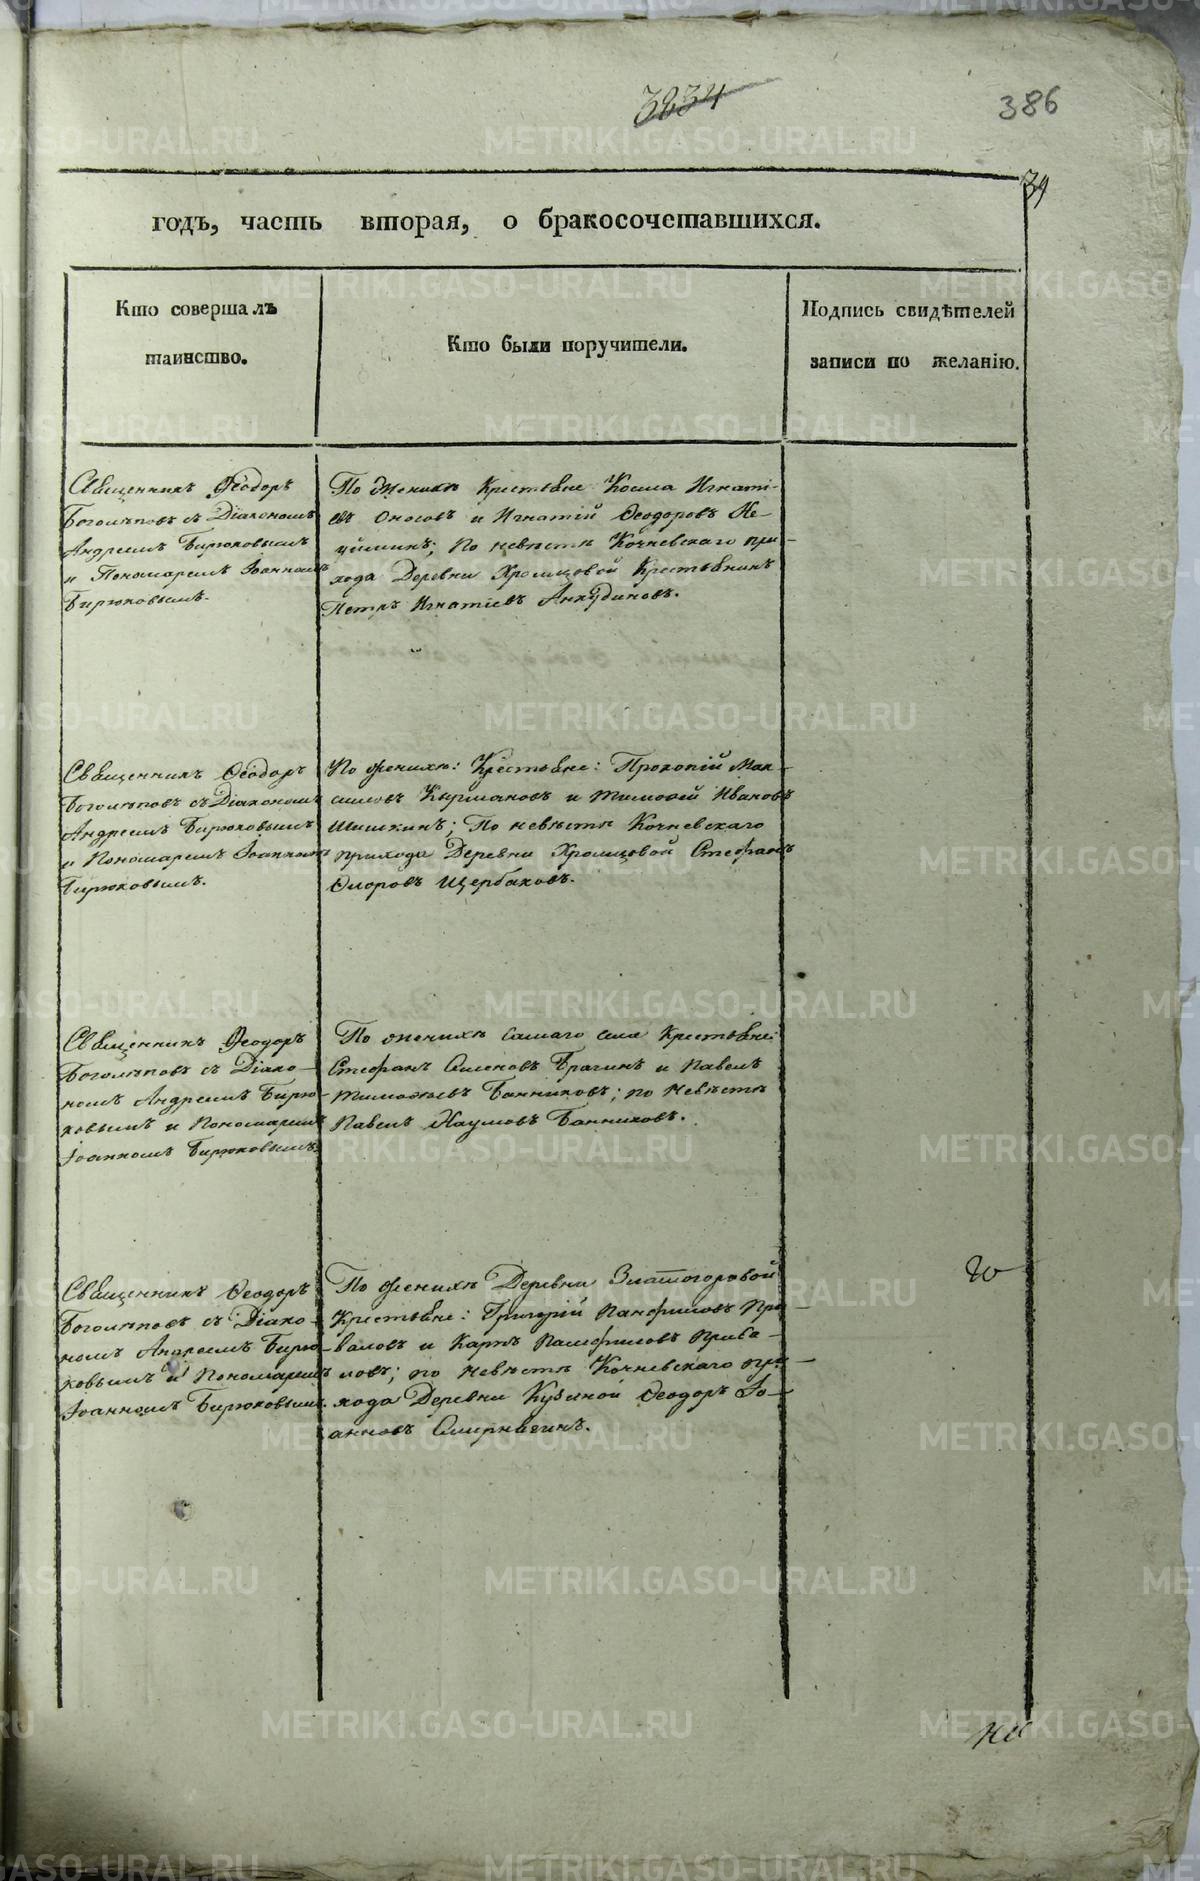 3834
386
39
годъ, часть вторая, о бракосочетавшихся.
Кто совершалъ
таинство.
Кто были поручители.
Подпись свидѣтелей
записи по желанію.
Священникъ Ѳеодоръ
Боголѣповъ съ Діакономъ
Андреемъ Бирюковымъ
и Пономаремъ Іоанномъ
Бирюковымъ.
По женихѣ Крестьяне Косма Игнаті-
евъ Оносовъ и Игнатій Ѳеодоровъ Не-
уйминъ; по невѣстѣ Кочневскаго при-
хода Деревни Хромцовой Крестьянинъ
Петръ Игнатіевъ Анкудиновъ.
Священникъ Ѳеодоръ
Боголѣповъ съ Діакономъ
Андреемъ Бирюковымъ
и Пономаремъ Іоанномъ
Бирюковымъ.
По женихѣ: Крестьяне: Прокопій Мак-
симовъ Кырмановъ и Тимофей Ивановъ
Шишкинъ; По невѣстѣ Кочневскаго
прихода Деревни Хромцовой Стефанъ
Щербаковъ.
Священникъ Ѳеодоръ
Боголѣповъ съ Діако-
номъ Андреемъ Бирю-
ковымъ и Пономаремъ
Іоанномъ Бирюковымъ.
По женихѣ самаго села Крестьяне:
Стефанъ Семеновъ Брагинъ и Павелъ
Банниковъ; по Невѣстѣ
Павелъ Наумовъ Банниковъ.
Священникъ Ѳеодоръ
Боголѣповъ съ Діако-
номъ Андреемъ Бирю-
ковымъ и Пономаремъ
Іоанномъ Бирюковымъ.
По женихѣ Деревни Златогоровой
Крестьяне: Григорій Панфиловъ При-
валовъ и Карпъ Памфиловъ Прива-
ловъ; по невѣстѣ Кочневскаго при-
хода Деревни Кузиной Ѳеодоръ Іо-
анновъ Смирнягинъ.
METRIKI.GASO-URAL.RU